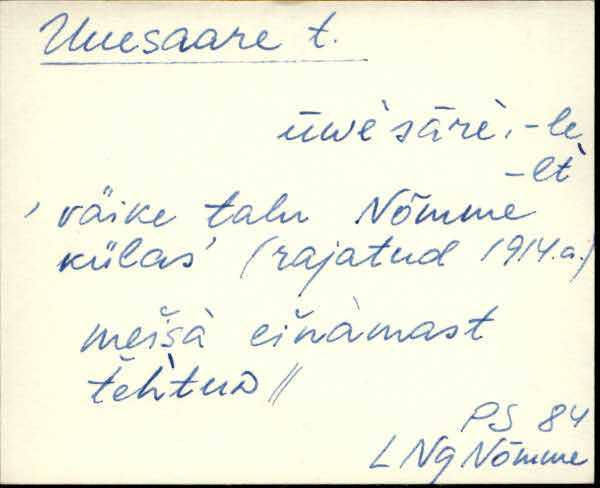 Uuesaare t.
ūwèsārè, -le
-lt̀
'väike talu Nõmme
külas' (rajatud 1914.a.)
meišà eišnàmast
tehtuD //
PS 84
LNg Nõmme